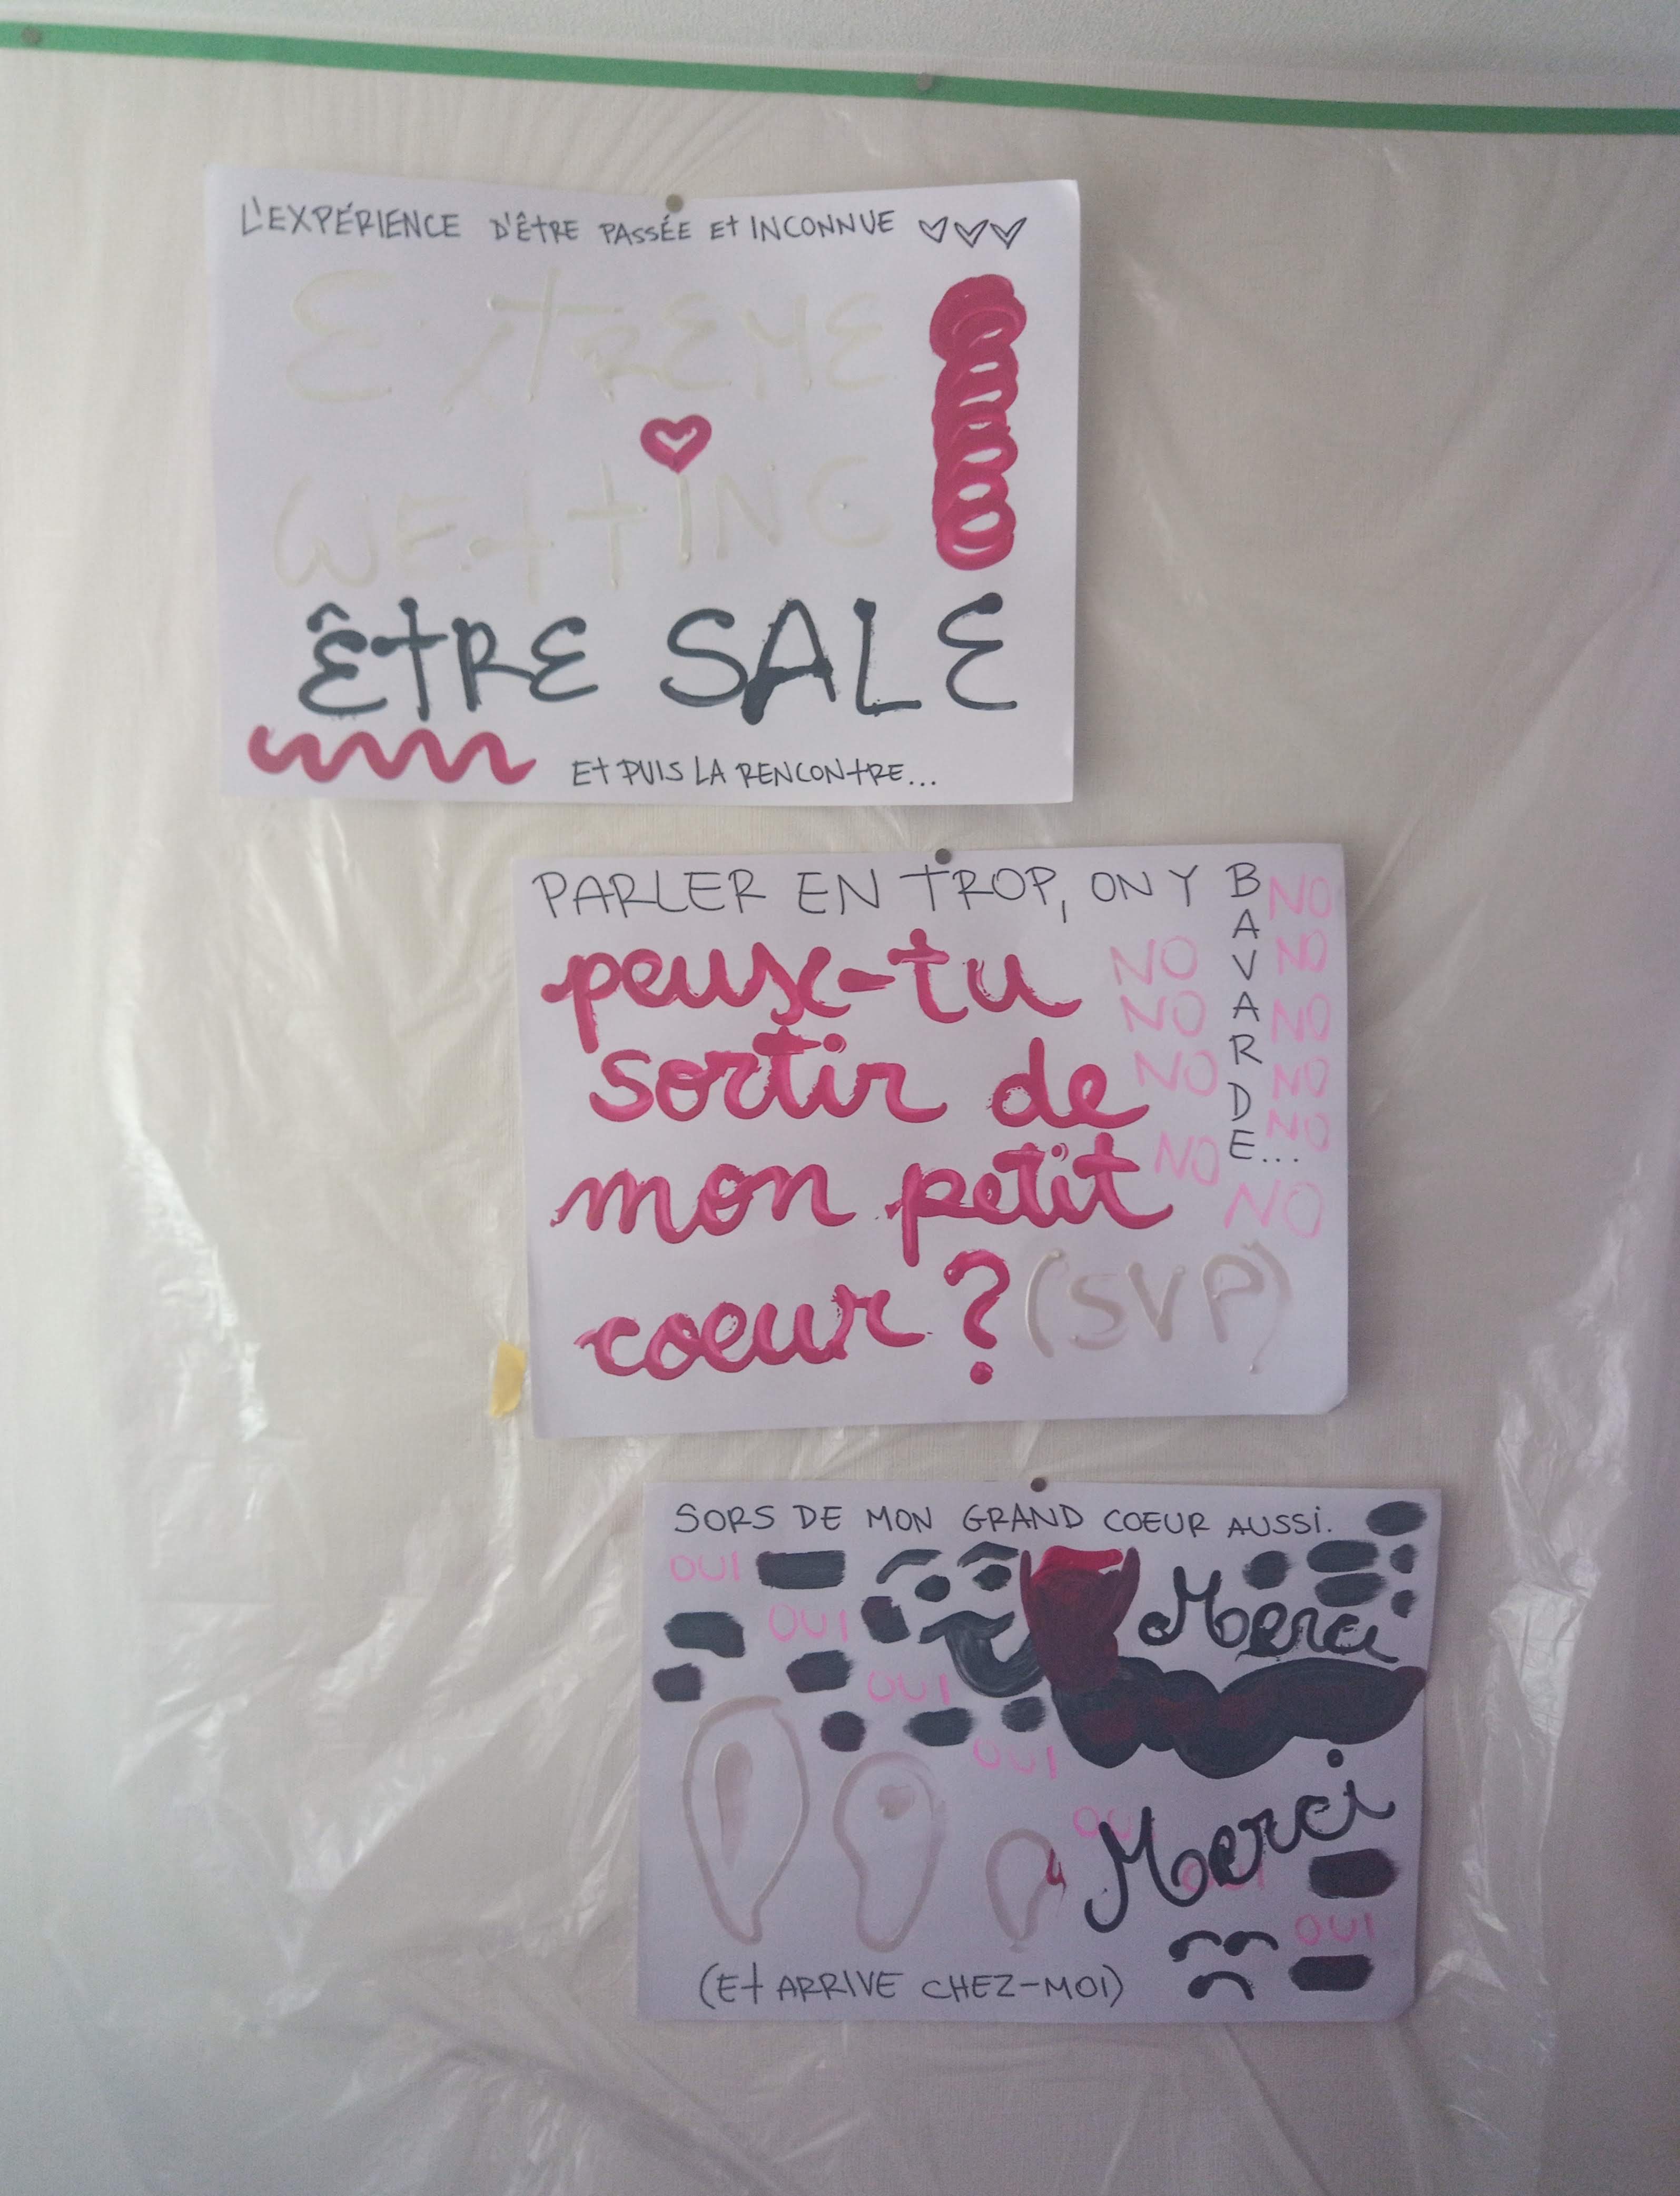 L'EXPÉRIENCE D'ÊTRE PASSÉE Et INCONNUE ♡♡♡
EXTREME
WETTING
ÊTRE SALE
Et PUIS LA RENCONTRE...
PARLER EN TROP, ON Y BAVARDE...
peux-tu
sortir de
mon petit
coeur ? (SVP)
NO
NO
NO
NO
NO
NO
NO
NO
NO
NO
SORS DE MON GRAND COEUR AUSSI.
OUI
OUI
Merci
OUI
OUI
OUI
Merci
OUI
OUI
(Et ARRIVE CHEZ-MOI)